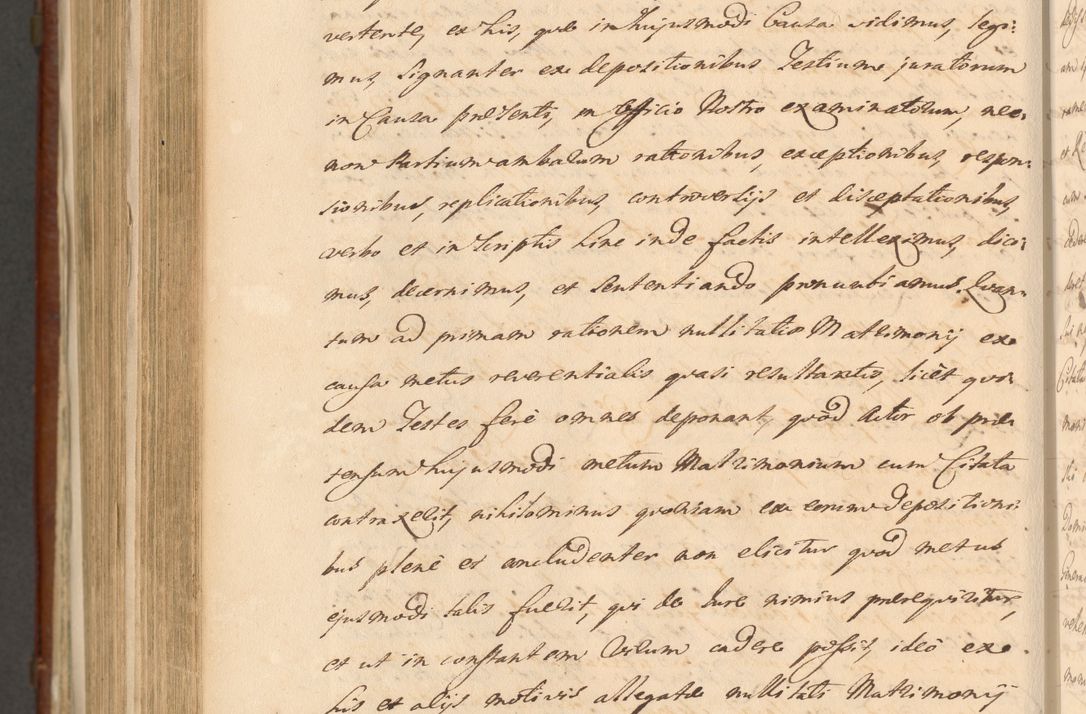 vertente, ex his, quæ in hujusmodi Causa vidimus, legi:
mus, signanter ex depositionibus Testium juratorum
in Causa præsenti, in Officio Nostro examinatorum, nec
non Partium ambarum rationibus, exceptionibus, respon:
sionibus, replicationibus, controversijs et disceptationibus,
verbo et in Scriptis hinc inde factis intelleximus, dici:
mus, decernimus, et sententiando pronuntiamus. Quan:
tum ad primam rationem nullitatis Matrimonij ex
causa metus reverentialis quasi resultantis, licèt qui:
dem Testes ferè omnes deponant, quòd Actor ob præ:
tensum hujusmodi metum Matrimonium cum Citata
contraxerit, nihilominus quoniam ex eorum depositioni:
bus plenè et concludenter non elicitur quòd metus
ejusmodi talis fuerit, qui de Jure nimius prærequiritur,
et ut in constantem Virum cadere possit, ideò ex
his et alijs motivis allegatæ nullitati Matrimonij